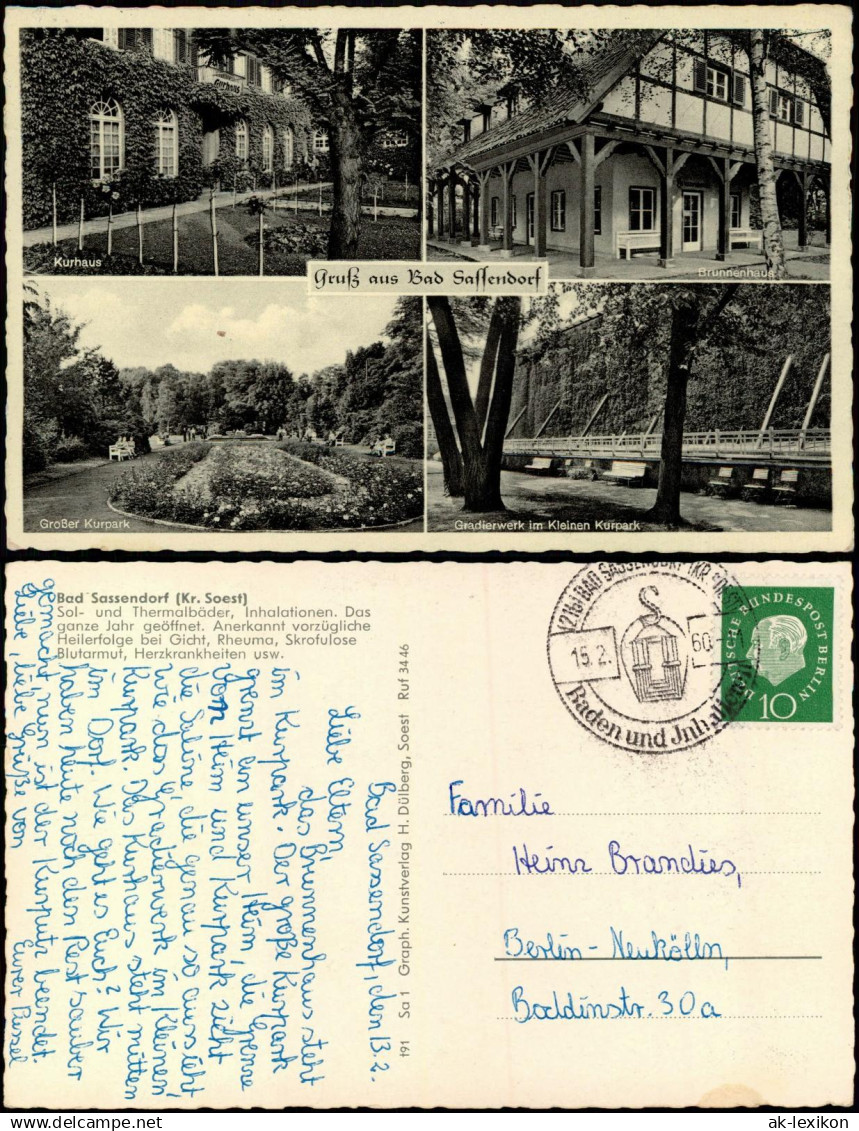 Kurhaus
Kurhaus
Brunnenhaus
Gruß aus Bad Sassendorf
Großer Kurpark
Gradierwerk im Kleinen Kurpark
Bad Sassendorf (Kr. Soest)
Sol- und Thermalbäder, Inhalationen. Das
ganze Jahr geöffnet. Anerkannt vorzügliche
Heilerfolge bei Gicht, Rheuma, Skrofulose
Blutarmut, Herzkrankheiten usw.
Bad Sassendorf, den 13.2.
Liebe Eltern,
das Brunnenhaus steht
im Kurpark. Der große Kurpark
grenzt an unser Heim, die Grenze
von Heim und Kurpark zieht
die Saline, die genau so aussieht
wie das Gradierwerk im Kleinen
Kurpark. Das Kurhaus steht mitten
im Dorf. Wie geht es Euch? Wir
haben heute noch den Rest sauber
gemacht, nun ist der Kurputz beendet.
Liebe, liebe Grüße von
Eurer
191 Sa 1 Graph. Kunstverlag H. Dülberg, Soest Ruf 3446
(21b) BAD SASSENDORF (KR. SOEST)
15.2.
60
Baden und Inhalieren
DEUTSCHE BUNDESPOST BERLIN
10
Familie
Heinz Brandies,
Berlin-Neukölln,
Boddinstr. 30a
ak-lexikon